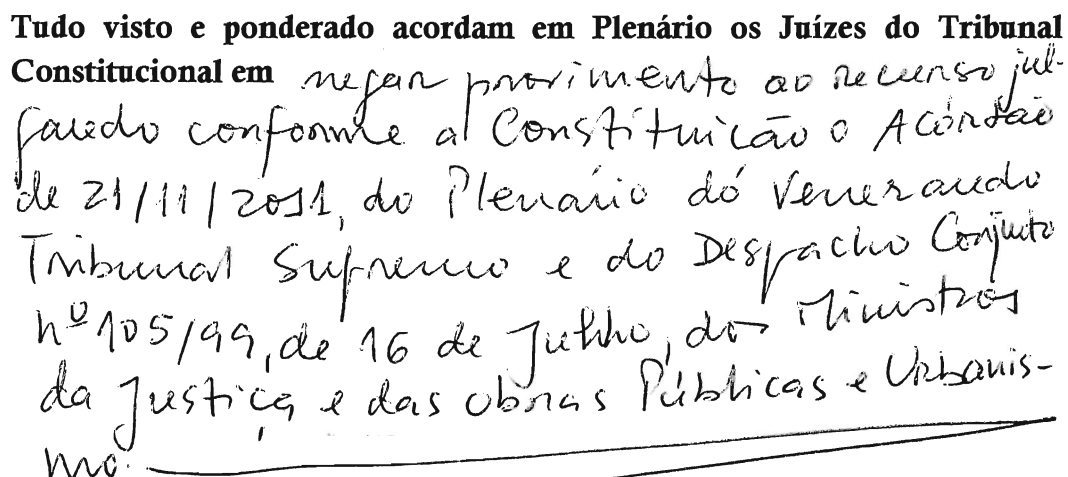 Tudo visto e ponderado acordam em Plenário os Juízes do Tribunal
Constitucional em negar provimento ao recurso jul-
gando conforme a Constituição o Acórdão
de 21/11/2011, do Plenário do Venerando
Tribunal Supremo e do Despacho Conjunto
nº 105/99, de 16 de Julho, dos Ministros
da Justiça e das obras Públicas e Urbanis-
mo.